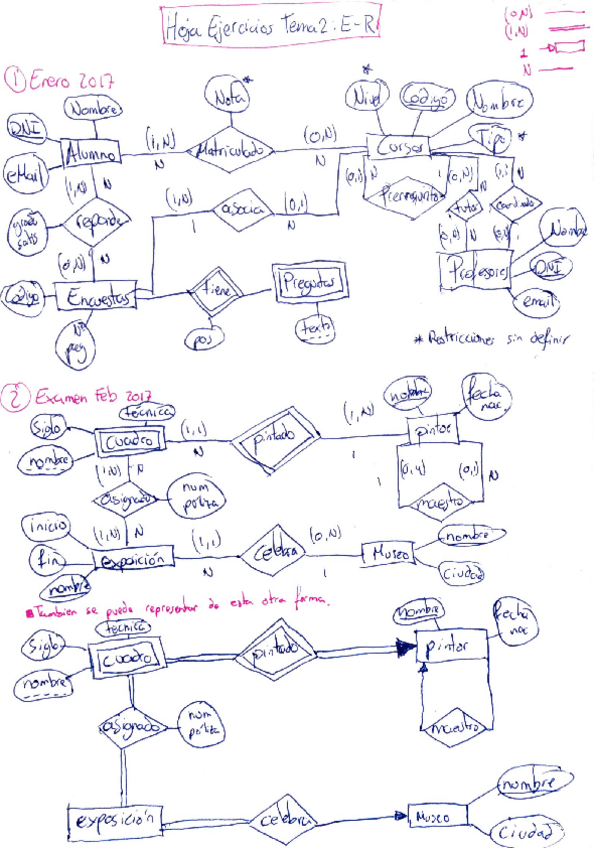 Hoja Ejercicios Tema 2: E-R
(0,N)
(1,N)
1
N
1 Enero 2017
Nombre
DNI
eMail
Alumno
(1,N)
Matriculado
N
N
Nota *
(0,N)
N
* Nivel
Código
Nombre
Tipo *
Cursos
(1,N)
N
responde
grado
satis
(0,N)
N
(1,N)
1
asocia
(0,1)
N
(0,N)
N
Prerrequisito
1
(0,N)
N
tutor
(0,N)
N
(1,1)
N
coordinado
(0,N)
1
Profesores
Nombre
DNI
email
Código
Encuestas
Nº
preg
tiene
pos
Preguntas
texto
* Restricciones sin definir
2 Examen Feb 2017
Siglo
técnica
nombre
Cuadro
(1,1)
N
pintado
(1,N)
1
nombre
fecha
nac.
pintor
(1,N)
N
asignado
num
poliza
1
(0,N)
(0,1)
N
maestro
inicio
fin
nombre
(1,N)
N
exposición
(1,1)
N
celebra
(0,N)
1
Museo
nombre
Ciudad
También se puede representar de esta otra forma.
Siglo
técnica
nombre
Cuadro
pintado
nombre
fecha
nac
pintor
asignado
num
poliza
maestro
exposición
celebra
Museo
nombre
Ciudad